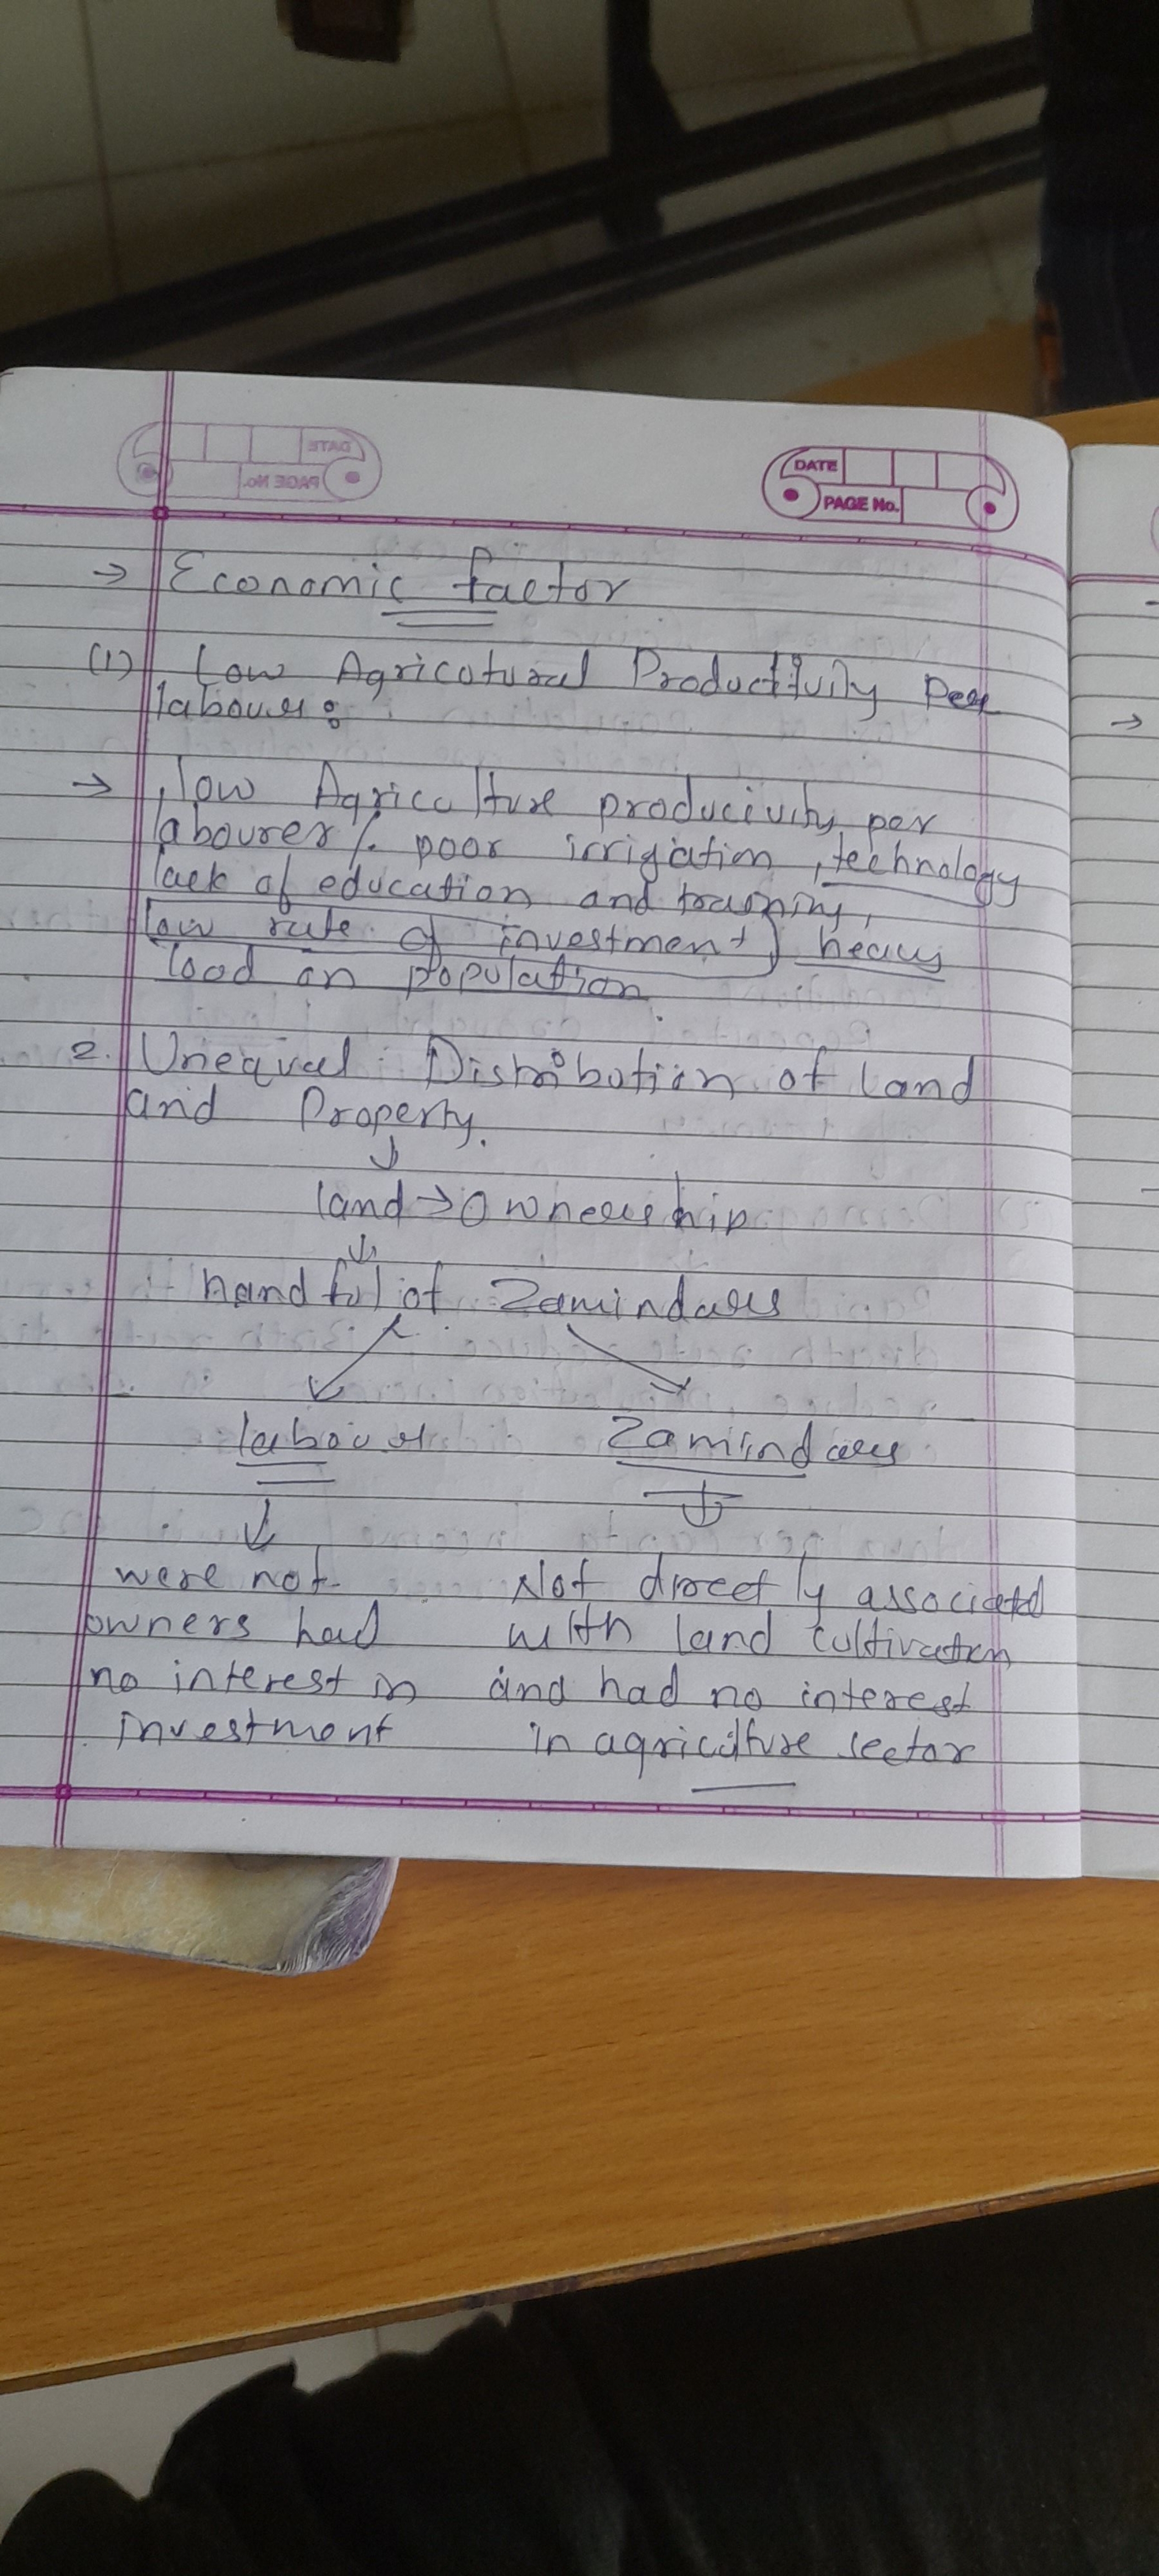 DATE
PAGE No.
→ Economic factor
(1) Low Agricotural Productivily Per
labour :
→ low Agriculture producivity per
labourer /. poor irrigation, technology
lack of education and training,
low rate of investment, heavy
load on population
2. Unequal Distribution of land
and Property.
↓
land → Ownership
↓
handful of Zamindars
labour Zamindars
↓ ↓
were not Not directly associated
owners had with land cultivation
no interest in and had no interest
investment in agriculture sector